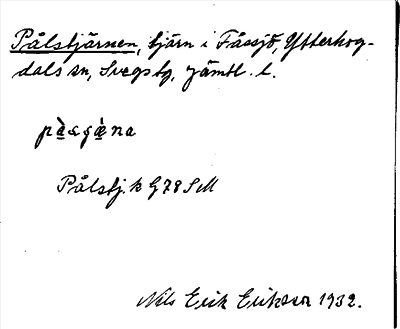 Pålstjärnen, tjärn i Fåssjö, Ytterhog-
dals sn, Svegs tg, Jämtl. l.
Pålstj. k G78 SM
Nils Erik Erikson 1932.